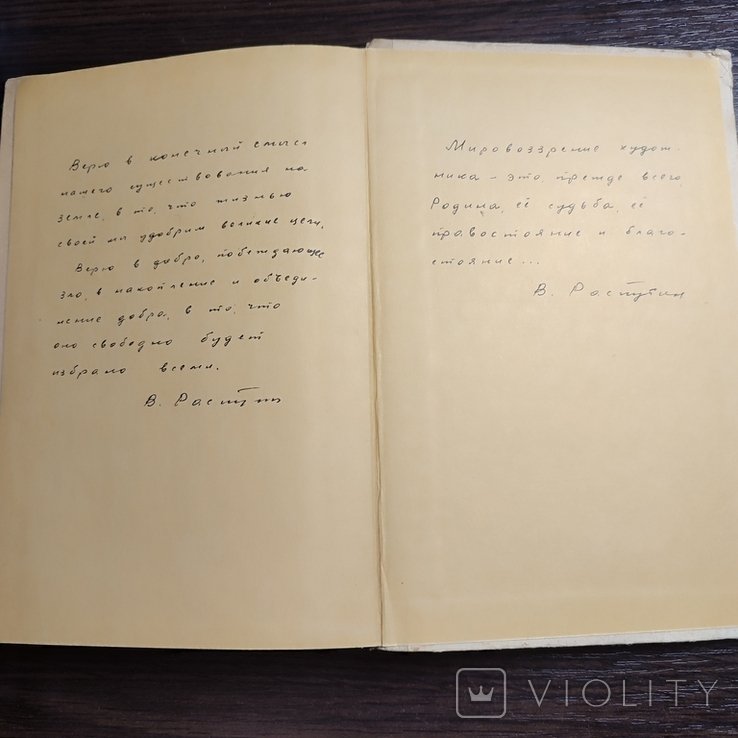 Верю в конечный смысл
нашего существования на
земле, в то, что жизнью
своей мы удобрим великие цели.
Верю в добро, побеждающее
зло, в накопление и объеди-
нение добра, в то, что
оно свободно будет
избрано всеми.
В. Распутин
Мировоззрение худож-
ника - это прежде всего
Родина, её судьба, её
правостояние и благо-
стояние...
В. Распутин
VIOLITY